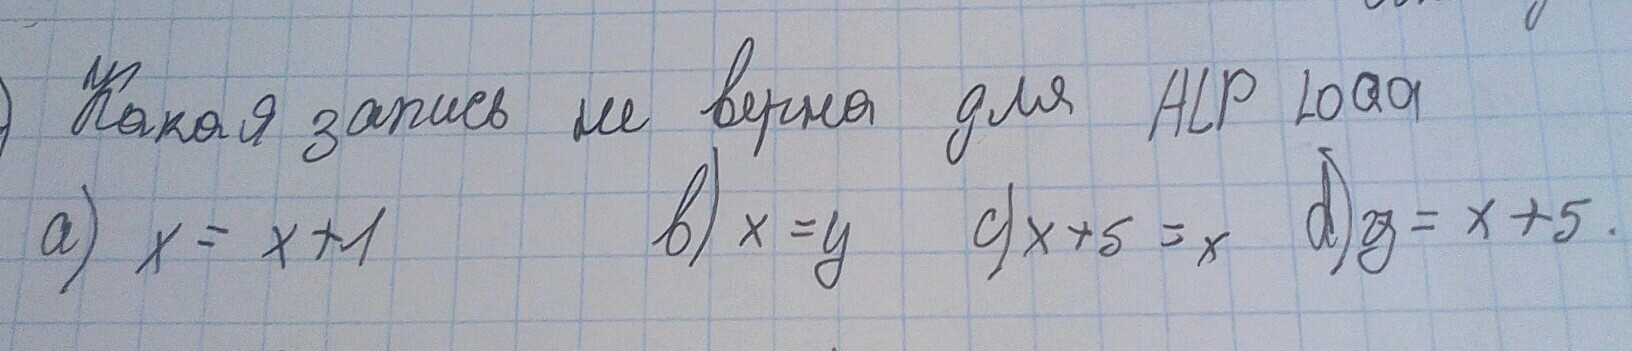 ) Какая запись не верна для ALP LOQQ
a) x = x+1 b) x = y c) x+5 = x d) y = x+5.